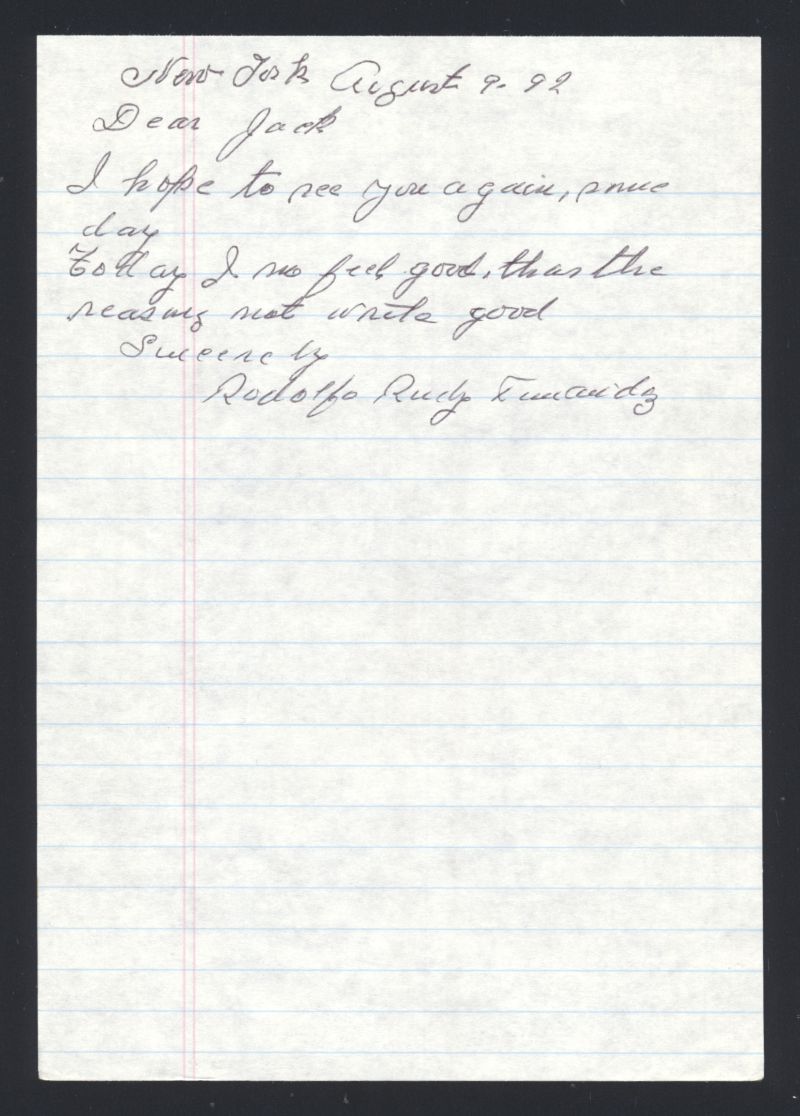 New York August 9- 92
Dear Jack
I hope to see you again, some
day
Today I no feel good, thas the
reasong not write good
Sincerely
Rodolfo Rudy Fernandez